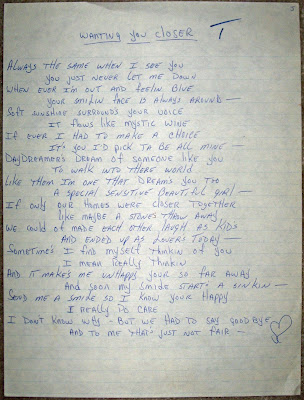 WANTING YOU CLOSER T
ALWAYS THE SAME WHEN I SEE YOU
YOU JUST NEVER LET ME DOWN
WHEN EVER I'M OUT AND FEELIN BLUE
YOUR SMILIN FACE IS ALWAYS AROUND —
SOFT SUNSHINE SURROUNDS YOUR VOICE
IT FLOWS LIKE MYSTIC WINE
IF EVER I HAD TO MAKE A CHOICE
IT'S YOU I'D PICK TO BE ALL MINE —
DAYDREAMER'S DREAM OF SOMEONE LIKE YOU
TO WALK INTO THERE WORLD
LIKE THEM I'M ONE THAT DREAMS YOU TOO
A SPECIAL SENSITIVE BEAUTIFUL GIRL —
IF ONLY OUR HOMES WERE CLOSER TOGETHER
LIKE MAYBE A STONES THROW AWAY
WE COULD OF MADE EACH OTHER LAUGH AS KIDS
AND ENDED UP AS LOVERS TODAY —
SOMETIMES I FIND MYSELF THINKIN OF YOU
I MEAN REALLY THINKIN
AND IT MAKES ME UNHAPPY YOUR SO FAR AWAY
AND SOON MY SMILE STARTS A SINKIN —
SEND ME A SMILE SO I KNOW YOUR HAPPY
I REALLY DO CARE
I DON'T KNOW WHY - BUT WE HAD TO SAY GOODBYE
AND TO ME THATS JUST NOT FAIR —